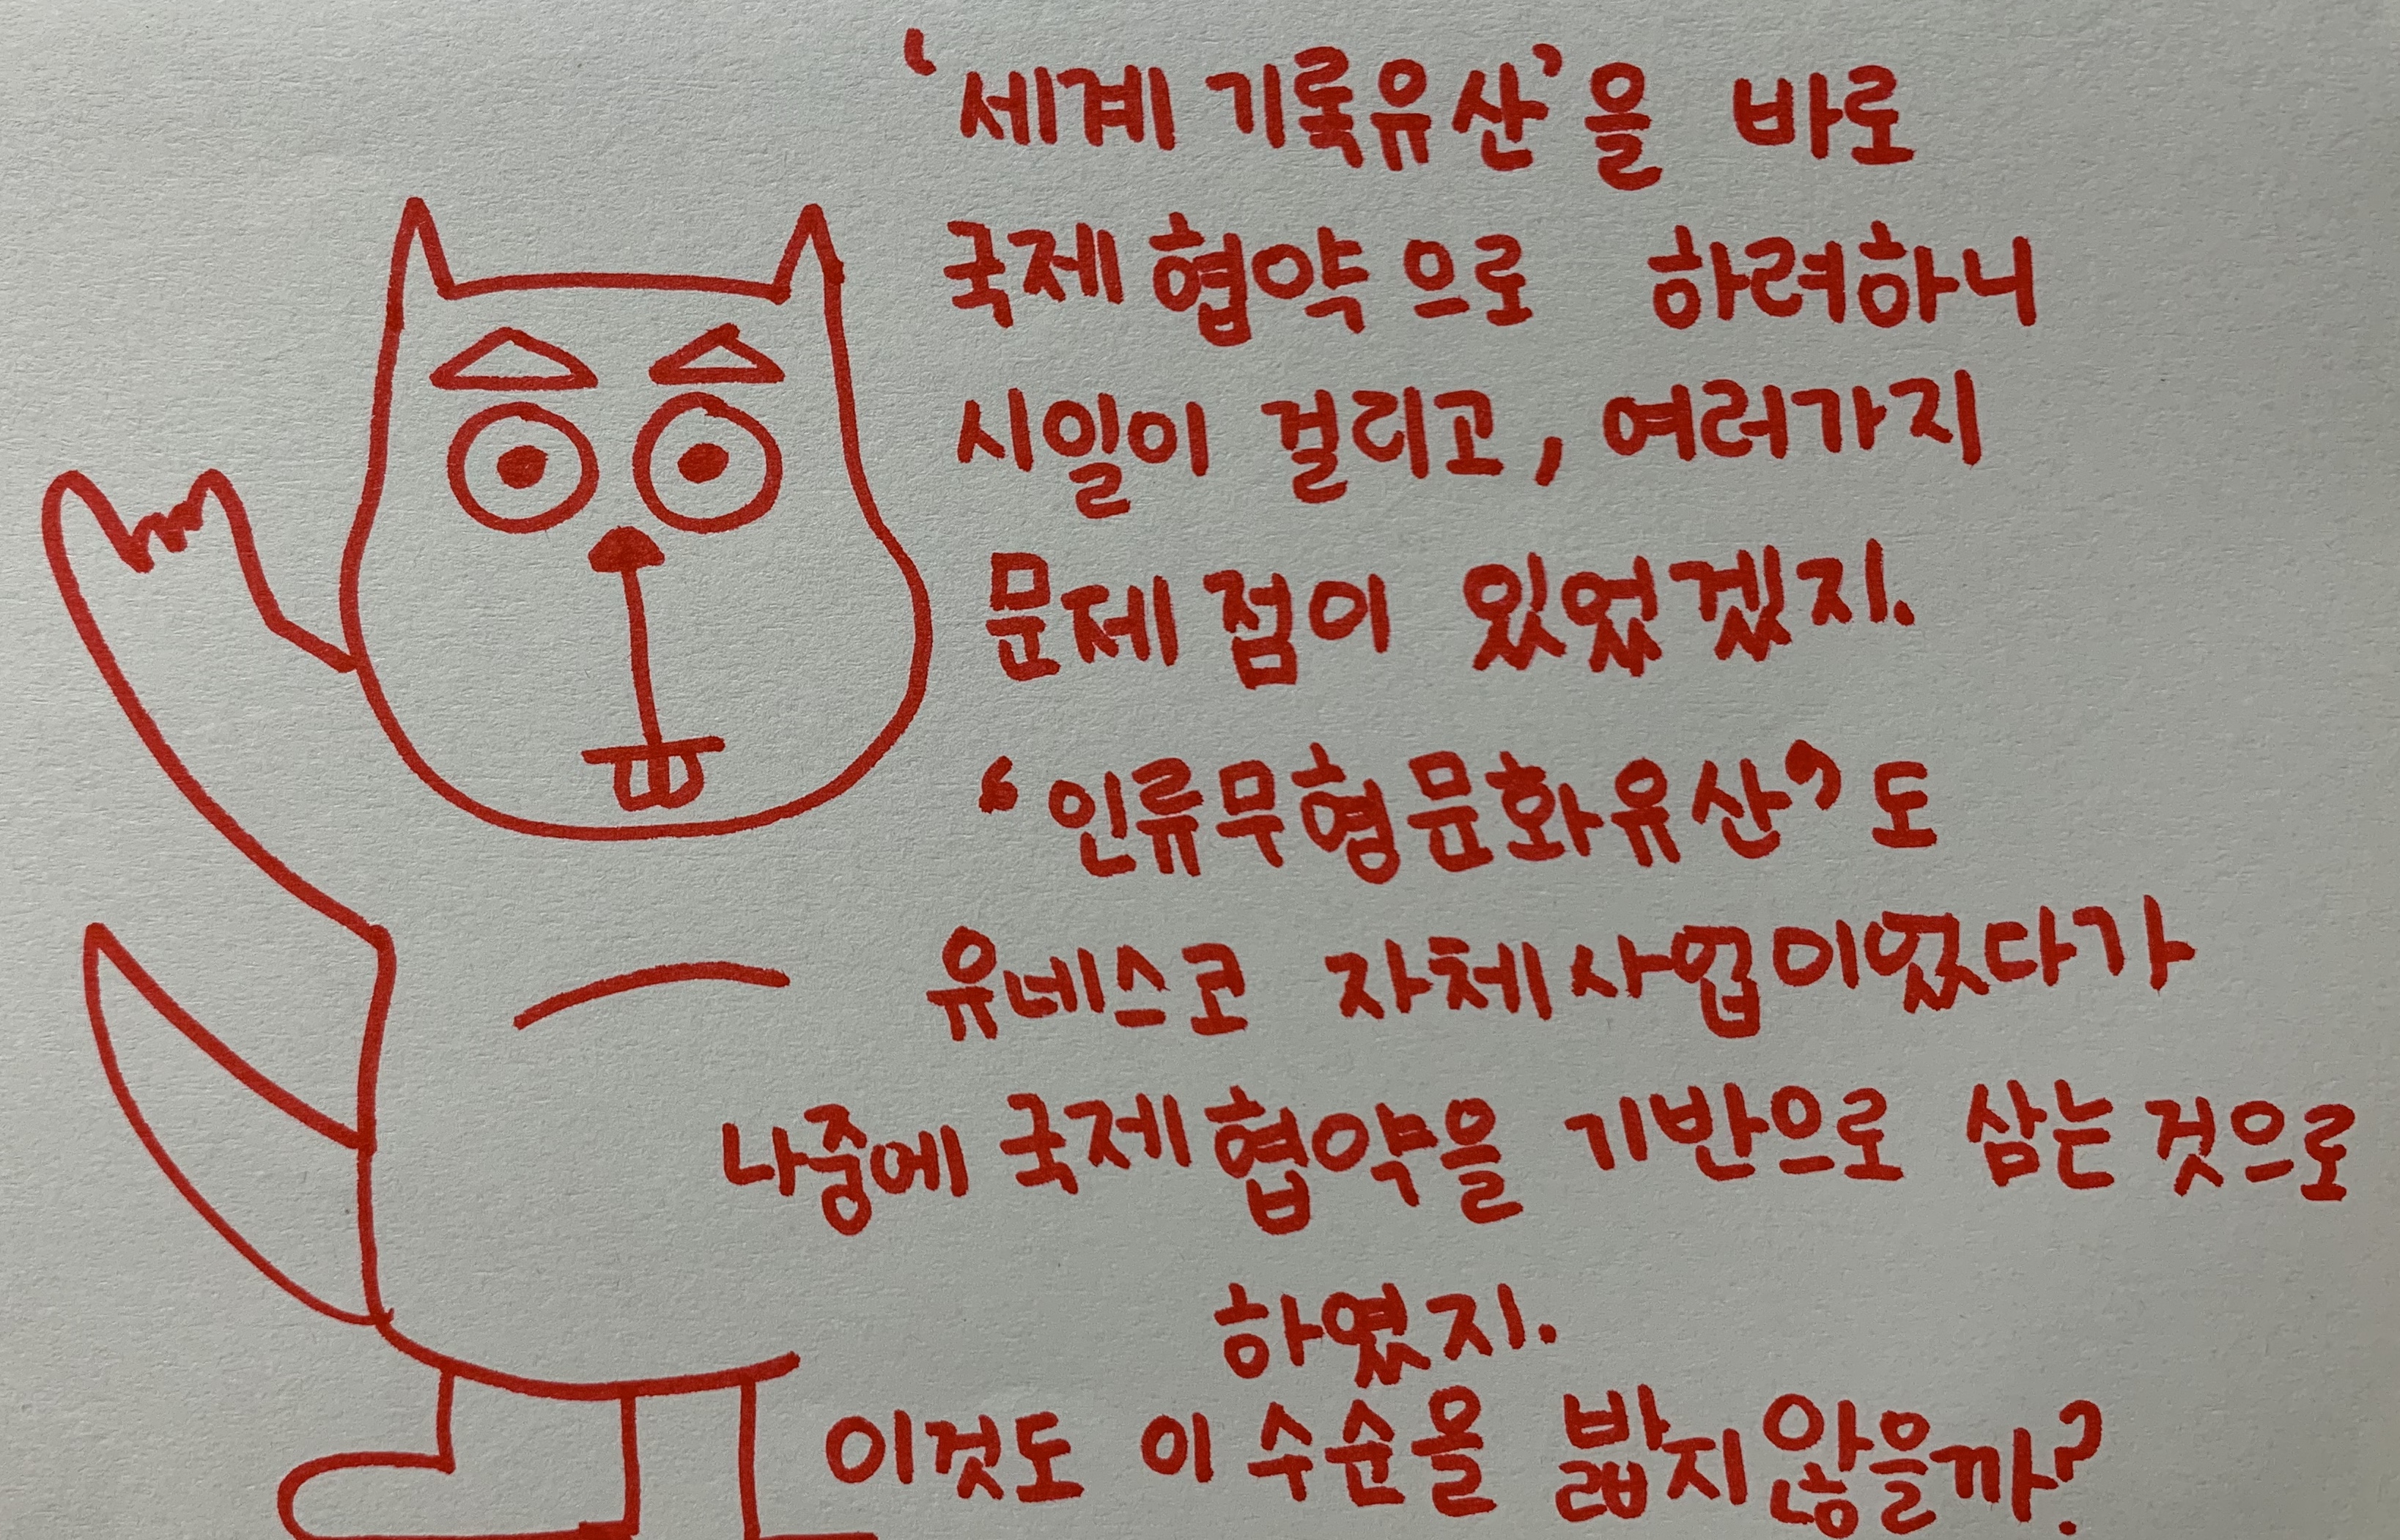 '세계 기록유산'을 바로
국제협약으로 하려하니
시일이 걸리고, 여러가지
문제점이 있었겠지.
'인류무형문화유산'도
유네스코 자체사업이었다가
나중에 국제협약을 기반으로 삼는것으로
하였지.
이것도 이 수순을 밟지않을까?